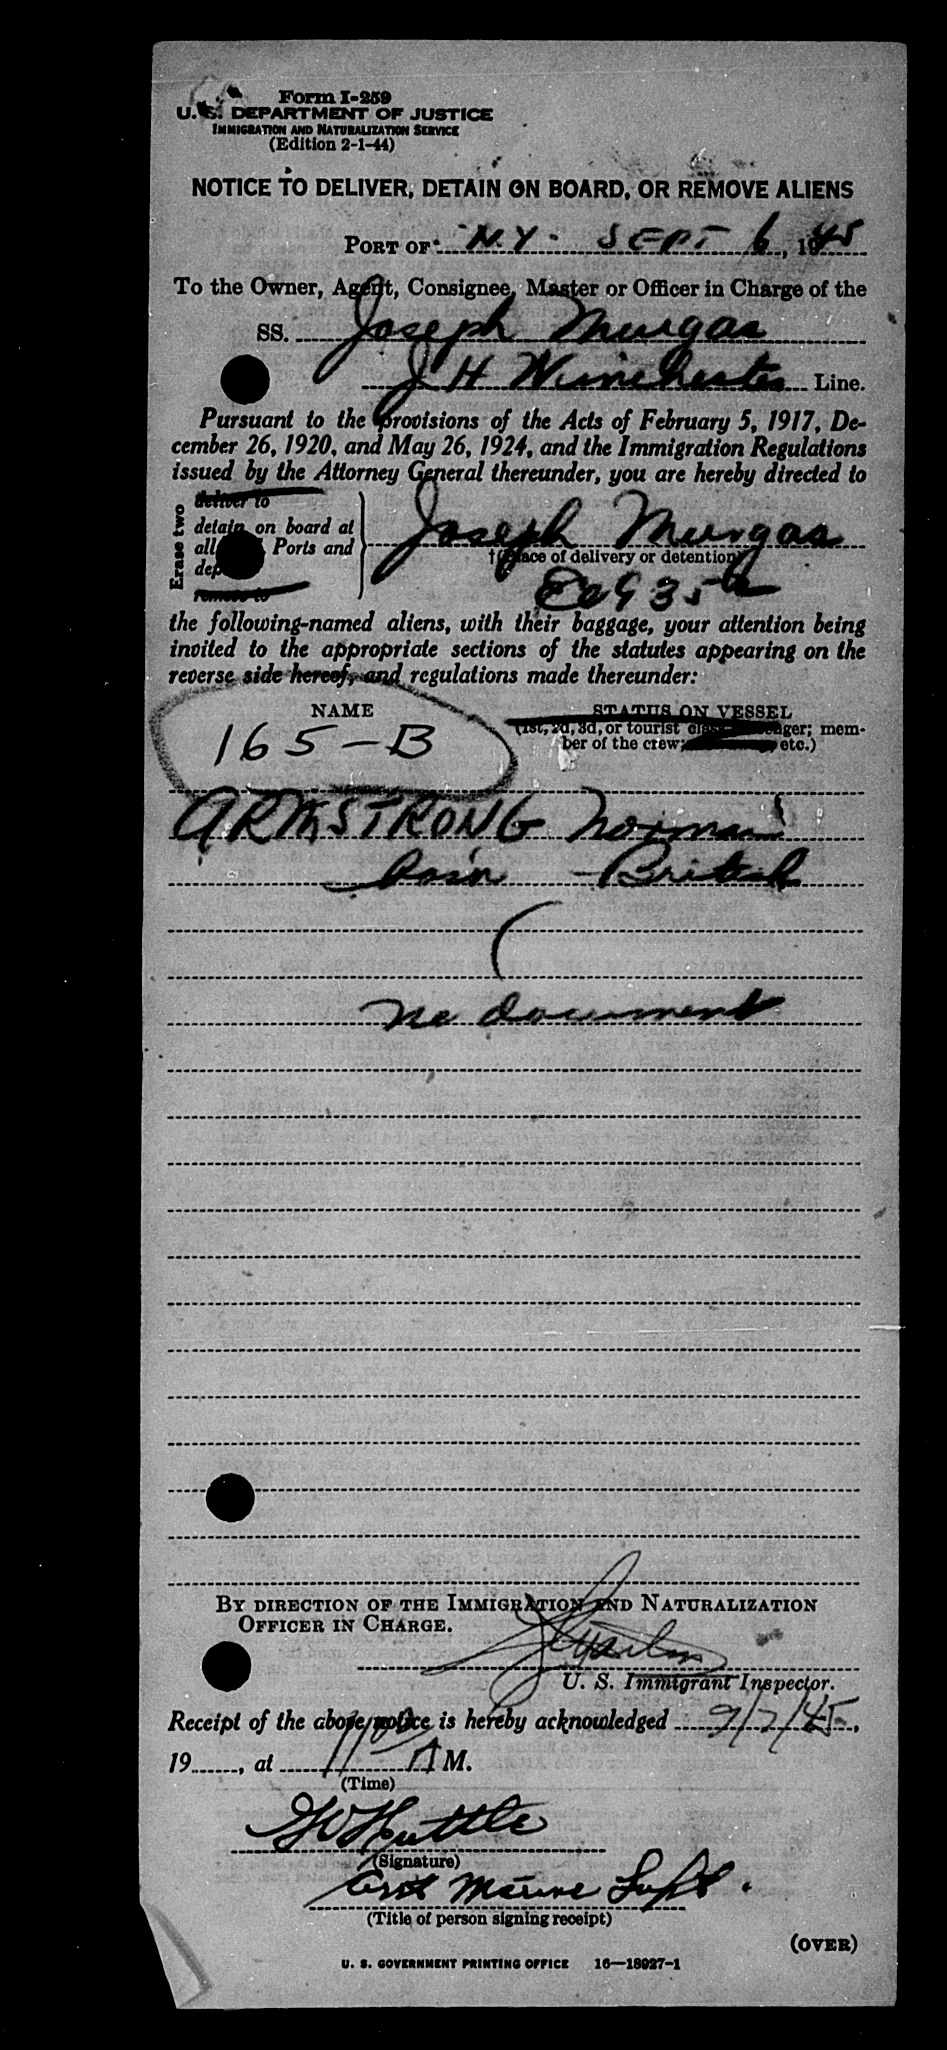 Form I-259
U. S. DEPARTMENT OF JUSTICE
IMMIGRATION AND NATURALIZATION SERVICE
(Edition 2-1-44)
NOTICE TO DELIVER, DETAIN ON BOARD, OR REMOVE ALIENS
PORT OF N.Y. SEPT 6, 1945
To the Owner, Agent, Consignee, Master or Officer in Charge of the
SS. Joseph Murgas
J H Winchester Line.
Pursuant to the provisions of the Acts of February 5, 1917, De-
cember 26, 1920, and May 26, 1924, and the Immigration Regulations
issued by the Attorney General thereunder, you are hereby directed to
Erase two
deliver to
detain on board at
all Ports and
dep
remove to
Joseph Murgas
†(Place of delivery or detention)
35
the following-named aliens, with their baggage, your attention being
invited to the appropriate sections of the statutes appearing on the
reverse side hereof, and regulations made thereunder:
NAME
STATUS ON VESSEL
(1st, 2d, 3d, or tourist class passenger; mem-
ber of the crew; etc.)
165-B
ARMSTRONG Norman
British
no document
BY DIRECTION OF THE IMMIGRATION AND NATURALIZATION
OFFICER IN CHARGE.
U. S. Immigrant Inspector.
Receipt of the above notice is hereby acknowledged 9/7/45,
19......, at A M.
(Time)
Huttle
(Signature)
Asst Marine Supt.
(Title of person signing receipt)
(OVER)
U. S. GOVERNMENT PRINTING OFFICE 16—18027-1